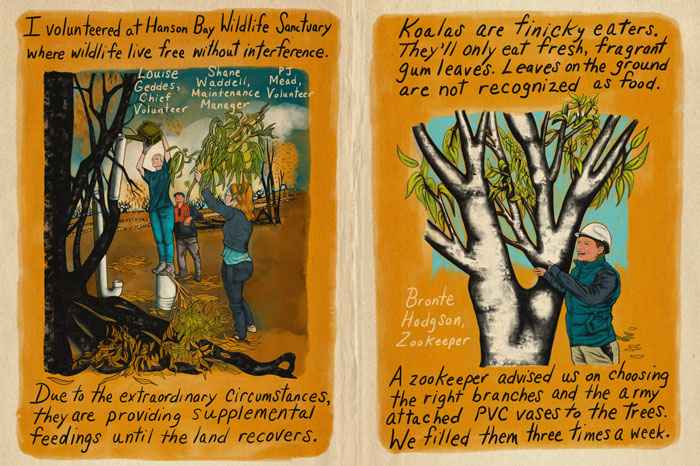 I volunteered at Hanson Bay Wildlife Sanctuary
where wildlife live free without interference.
Louise
Geddes,
Chief
Volunteer
Shane
Waddell,
Maintenance
Manager
PJ
Mead,
Volunteer
Due to the extraordinary circumstances,
they are providing supplemental
feedings until the land recovers.
Koalas are finicky eaters.
They'll only eat fresh, fragrant
gum leaves. Leaves on the ground
are not recognized as food.
Bronte
Hodgson,
Zookeeper
A zookeeper advised us on choosing
the right branches and the army
attached PVC vases to the trees.
We filled them three times a week.